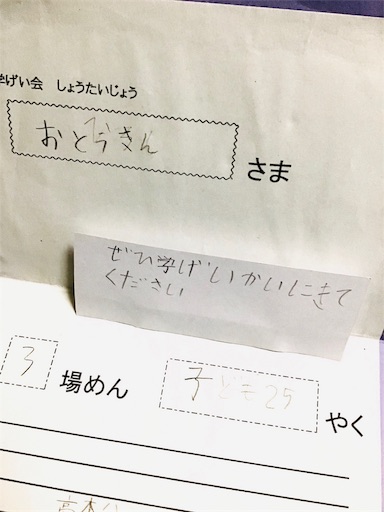 学げい会 しょうたいじょう
おとうさん
さま
ぜひ学げいかいにきて
ください
3 場めん 子ども29 やく